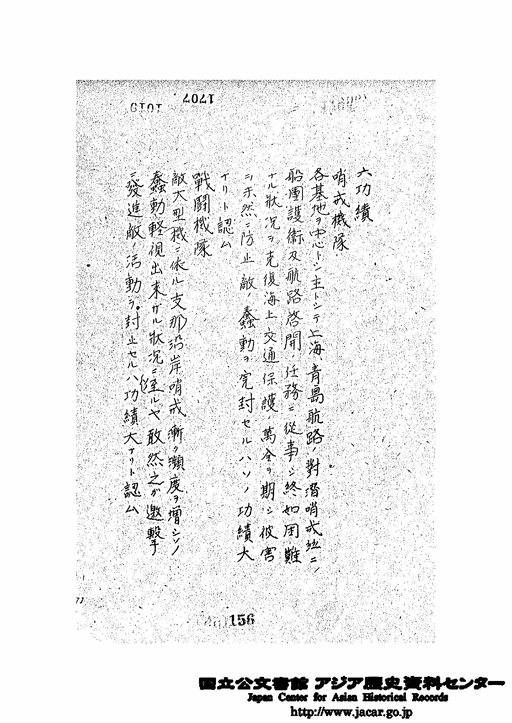 1707
1019
六功績
哨戒機隊
各基地ヲ中心トシ主トシテ上海、青島航路ノ對潜哨戒竝ニ
船團護衛及航路啓開ノ任務ニ從事シ終始困難
ナル狀況ヲ克復海上交通保護ノ萬全ヲ期シ被害
ヲ未然ニ防止敵ノ蠢動ヲ完封セルハソノ功績大
ナリト認ム
戰闘機隊
敵大型機ニ依ル支那沿岸哨戒漸ク頻度ヲ増シソノ
蠢動輕視出來ザル狀況ニ至ルヤ敢然之ガ邀撃
ニ發進敵ノ活動ヲ封止セルハ功績大ナリト認ム
156
国立公文書館 アジア歴史資料センター
Japan Center for Asian Historical Records
http://www.jacar.go.jp